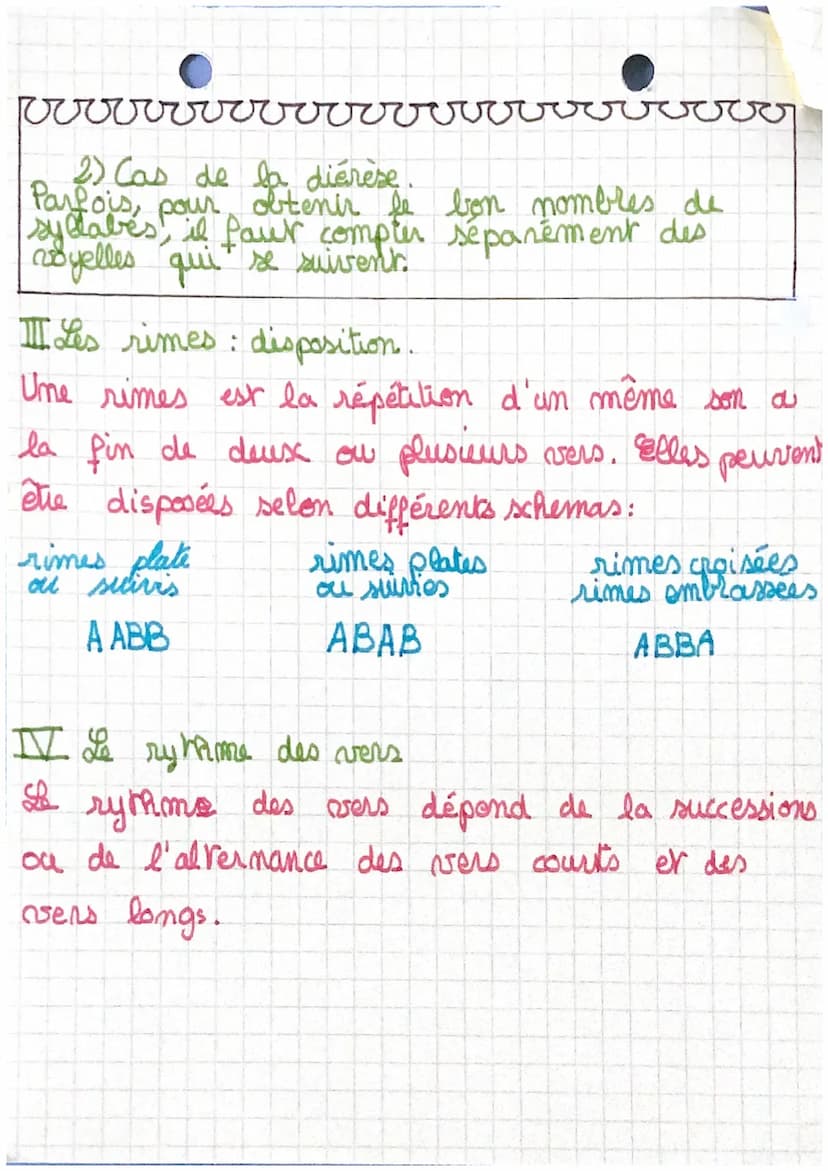 2) Cas de la diérèse.
Parfois, pour obtenir le bon nombres de
syllabes, il faut compter séparément des
voyelles qui se suivent.
III Les rimes : disposition.
Une rimes est la répétition d'un même son a
la fin de deux ou plusieurs vers. Elles peuvent
être disposées selon différents schemas:
rimes plate
ou suivis
A ABB
rimes plates
ou suivies
ABAB
rimes croisées
rimes embrassées
ABBA
IV Le rythme des vers
Le rythme des vers dépend de la successions
ou de l'alternance des vers courts et des
vers longs.